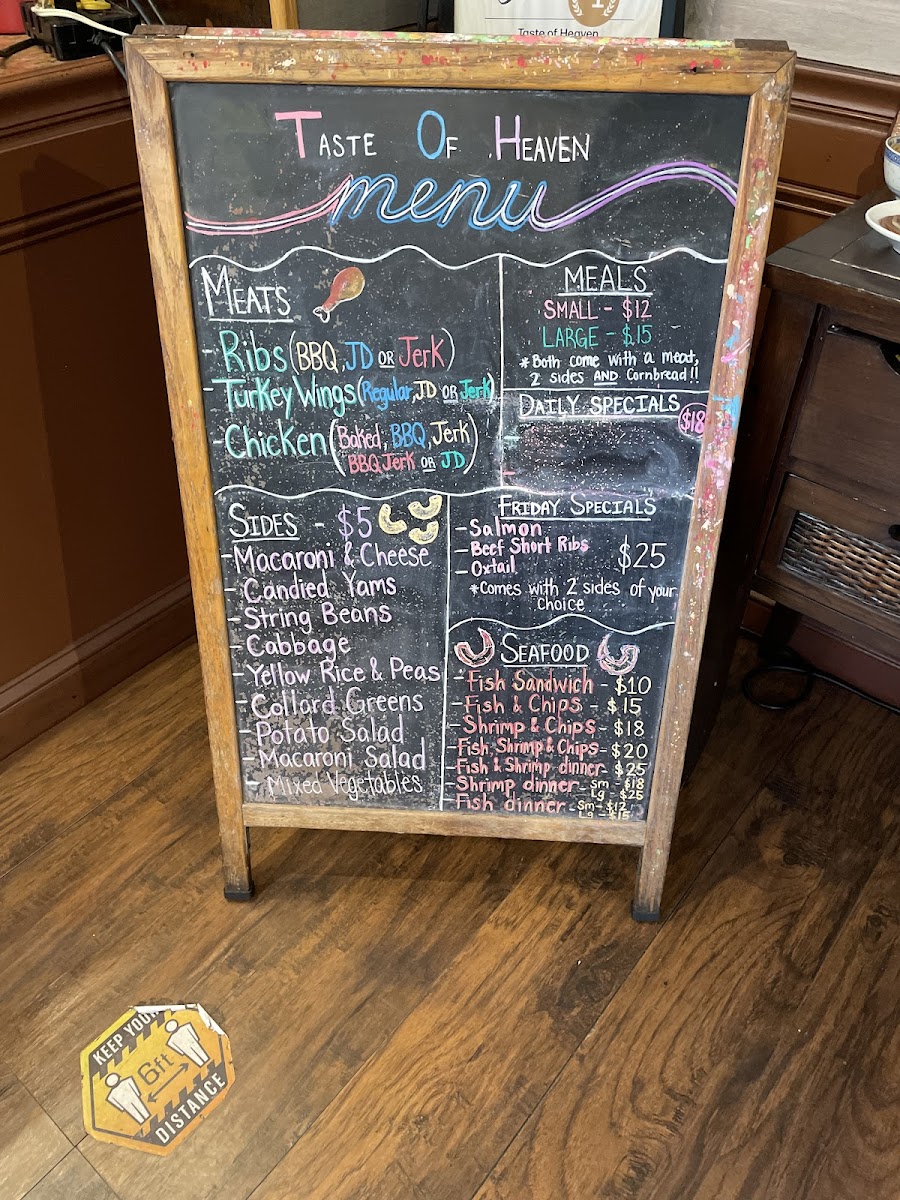 Taste of Heaven
TASTE OF HEAVEN
menu
MEATS
- Ribs (BBQ, JD OR Jerk)
- Turkey Wings (Regular, JD OR Jerk)
- Chicken (Baked, BBQ, Jerk
BBQ Jerk OR JD)
MEALS
SMALL - $12
LARGE - $15
* Both come with a meat,
2 sides AND Cornbread!!
DAILY SPECIALS
$18
SIDES - $5
- Macaroni & Cheese
- Candied Yams
- String Beans
- Cabbage
- Yellow Rice & Peas
- Collard Greens
- Potato Salad
- Macaroni Salad
- Mixed Vegetables
FRIDAY SPECIALS
- Salmon
- Beef Short Ribs
- Oxtail
$25
* Comes with 2 sides of your
choice
SEAFOOD
- Fish Sandwich - $10
- Fish & Chips - $15
- Shrimp & Chips - $18
- Fish Shrimp & Chips - $20
- Fish & Shrimp dinner - $25
- Shrimp dinner - Sm - $18
Lg - $25
- Fish dinner - Sm - $12
Lg - $15
KEEP YOUR
6ft
DISTANCE